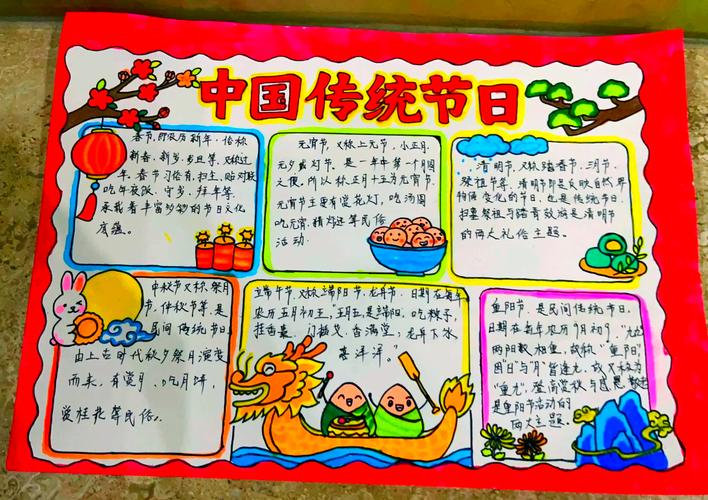 中国传统节日
春节,即农历新年,俗称
新春、新岁、岁旦等,又称过
年。春节习俗有:扫尘、贴对联
吃年夜饭、守岁、拜年等。
承载着丰富妙妙的节日文化
底蕴。
元宵节,又称上元节,小正月,
元夕或灯节,是一年中第一个月圆
之夜。所以称正月十五为元宵节
元宵节主要有赏花灯,吃汤圆
吃元宵,猜灯谜等民俗
活动.
清明节,又称踏春节、三月节、
祭祖节等,清明节即是反映自然界
物候变化的节日,也是传统节日,
扫墓祭祖与踏青效游是清明节
的两大礼俗主题。
中秋节又称祭月
节、仲秋节等,是
民间传统节日
由上古时代秋夕祭月演变
而来,有赏月、吃月饼,
赏桂花等民俗。
端午节,又称端阳节、龙舟节、日期在每年
农历五月初五,五月五,是端阳。吃粽子,
挂香囊,门插艾,香满堂,龙舟下水
喜洋洋。"
重阳节,是民间传统节日,
日期在每年农历9月初9,"九九
两阳数相重,故称"重阳",
因日与月皆逢九,故又称为
"重九",登高赏秋与感恩敬老
是重阳节活动的
两大主题。